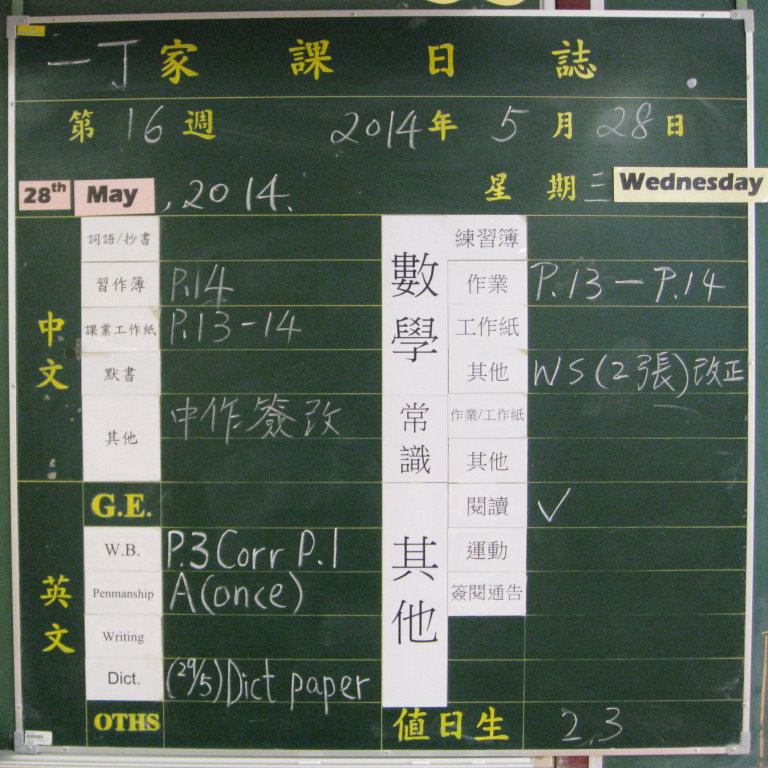 一丁家課日誌
第16週 2014年5月28日
28th May , 2014. 星期三 Wednesday
中文
詞語/抄書
習作簿 P.14
課業工作紙 P.13-14
默書
其他 中作簽改
英文
G.E.
W.B. P.3 Corr P.1
Penmanship A(once)
Writing
Dict. (29/5)Dict paper
OTHS
數學
練習簿
作業 P.13-P.14
工作紙
其他 WS(2張)改正
常識
作業/工作紙
其他
其他
閱讀 ✓
運動
簽閱通告
值日生 2,3